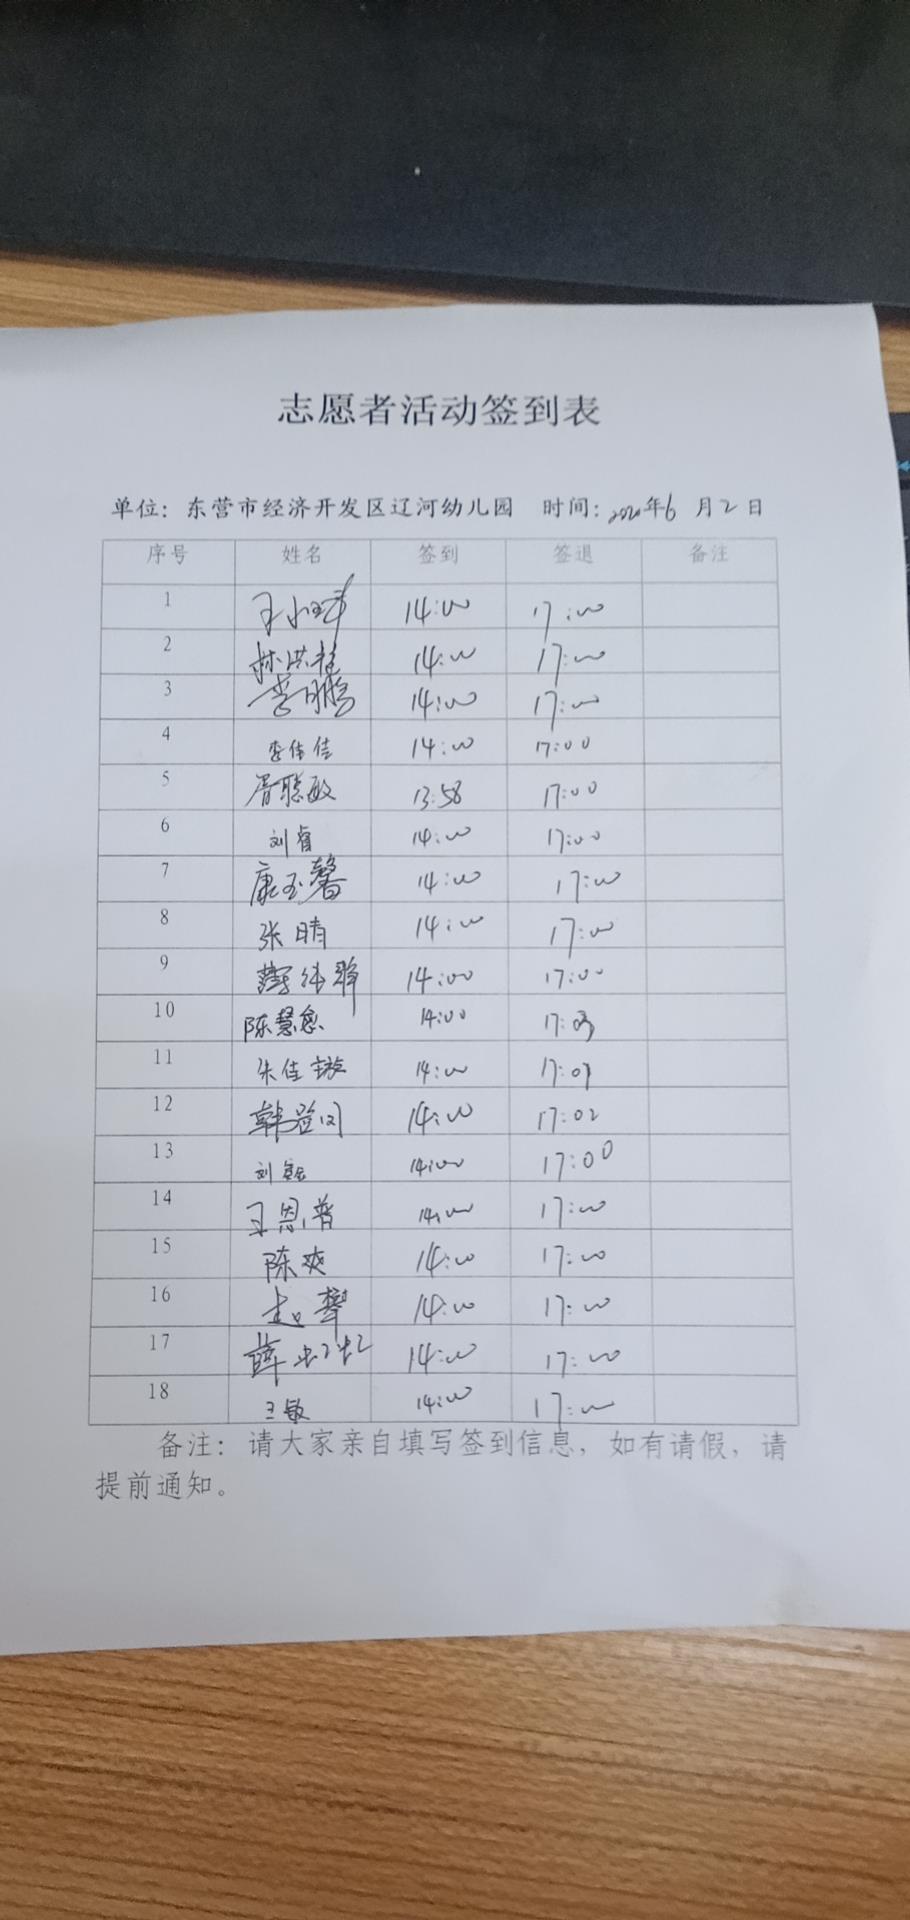 志愿者活动签到表
单位：东营市经济开发区辽河幼儿园 时间：2020年6月2日
序号 姓名 签到 签退 备注
1 14:00 17:00
2 林洪柱 14:00 17:00
3 李鹏 14:00 17:00
4 李伟佳 14:00 17:00
5 胥聪敏 13:58 17:00
6 刘睿 14:00 17:00
7 康玉馨 14:00 17:00
8 张晴 14:00 17:00
9 14:00 17:00
10 陈慧 14:00 17:03
11 朱佳璇 14:00 17:07
12 韩 14:00 17:02
13 刘 14:00 17:00
14 王恩普 14:00 17:00
15 陈爽 14:00 17:00
16 14:00 17:00
17 薛 14:00 17:00
18 王敏 14:00 17:00
备注：请大家亲自填写签到信息，如有请假，请
提前通知。